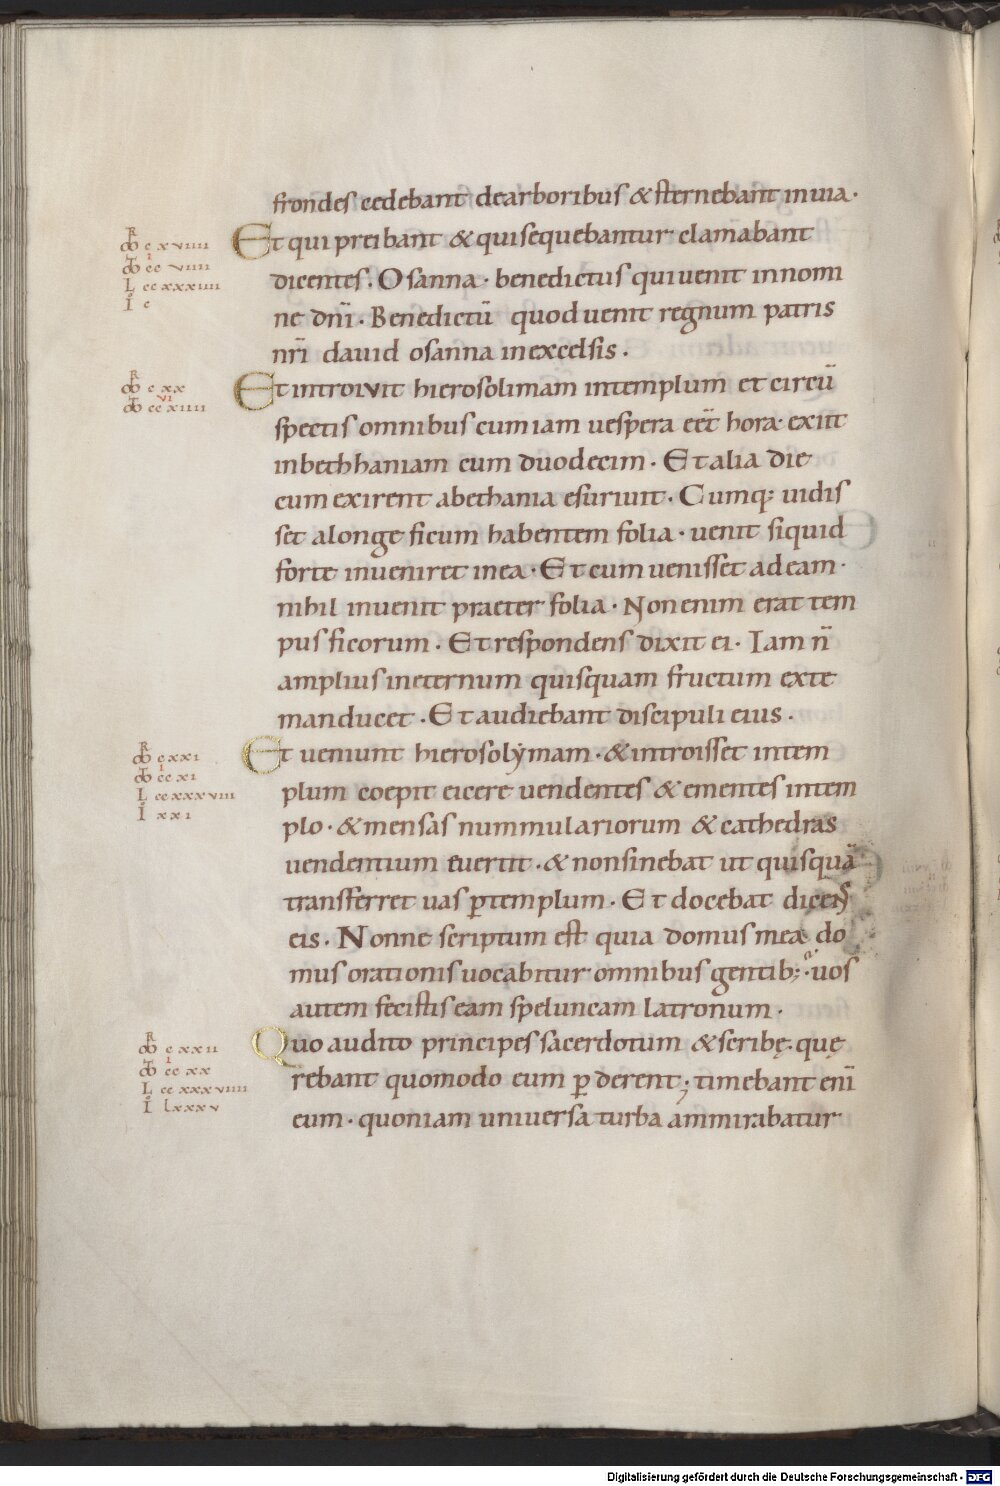 frondes cedebant dearboribus & sternebant inuia·
Et qui preibant & quisequebantur clamabant
dicentes. Osanna· benedictus qui uenit innomi
ne dnī· Benedictū quod uenit regnum patris
nr̄i dauid osanna inexcelsis·
Et introivit hierosolimam intemplum et circū
spectis omnibus cum iam uespera eēt hora· exiit
inbethhaniam cum duodecim· Et alia die
cum exirent abethania esuriuit· Cumq; uidis
set alonge ficum habentem folia· uenit siquid
forte inueniret inea· Et cum uenisset adeam·
nihil inuenit praeter folia· Non enim erat tem
pus ficorum· Et respondens dixit ei· Iam n̄
amplius ineternum quisquam fructum exte
manducet· Et audiebant discipuli eius·
Et ueniunt hierosolẏmam· & introisset intem
plum coepit eicere uendentes & ementes intem
plo· & mensas nummulariorum & cathedras
uendentium euertit· & nonsinebat ut quisquā
transferret uas ꝑtemplum· Et docebat dicens
eis· Nonne scriptum est quia domus mea do
mus orationis uocabitur omnibus gentib;· uos
autem fecistis eam speluncam latronum·
Quo audito principes sacerdotum & scribę· quę
rebant quomodo eum ꝑderent; timebant eni̅
eum· quoniam uniuersa turba ammirabatur
R
c xviiii
i
cc viiii
L cc xxxiiii
I c
R
c xx
vi
cc xiiii
R
c xxi
i
cc xi
L cc xxxviii
I xxi
R
c xxii
i
cc xx
L cc xxxviiii
I lxxxv
Digitalisierung gefördert durch die Deutsche Forschungsgemeinschaft - DFG